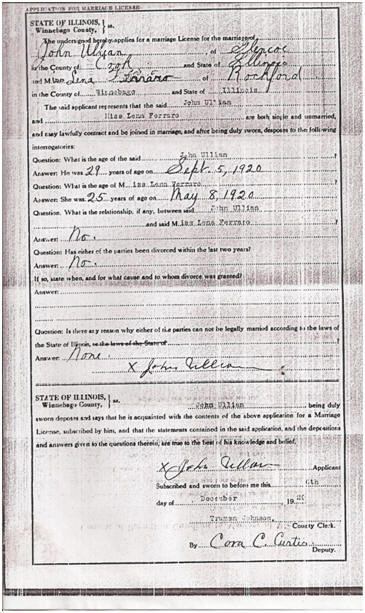 APPLICATION FOR MARRIAGE LICENSE
STATE OF ILLINOIS, } ss.
Winnebago County,
The undersigned hereby applies for a marriage License for the marriage of
John Ullian, of Glencoe
in the County of Cook and State of Illinois
and Miss Lena Ferraro of Rockford
in the County of Winnebago and State of Illinois
The said applicant represents that the said John Ullian
and Miss Lena Ferraro are both single and unmarried,
and may lawfully contract and be joined in marriage, and after being duly sworn, deposes to the following
interrogatories:
Question: What is the age of the said John Ullian ?
Answer: He was 29 years of age on Sept. 5, 1920
Question: What is the age of Miss Lena Ferraro ?
Answer: She was 25 years of age on May 8, 1920
Question: What is the relationship, if any, between said John Ullian
and said Miss Lena Ferraro ?
Answer: No.
Question: Has either of the parties been divorced within the last two years?
Answer: No.
If so, state when, and for what cause and to whom divorce was granted?
Answer:
Question: Is there any reason why either of the parties can not be legally married according to the laws of
the State of Illinois, or the laws of the State of ?
Answer: None
X John Ullian
STATE OF ILLINOIS, } ss.
Winnebago County,
John Ullian being duly
sworn deposes and says that he is acquainted with the contents of the above application for a Marriage
License, subscribed by him, and that the statements contained in the said application, and the depositions
and answers given to the questions therein, are true to the best of his knowledge and belief.
X John Ullian Applicant
Subscribed and sworn to before me this 6th
day of December 1920
Truman Johnson, County Clerk.
By Cora C. Curtis Deputy.